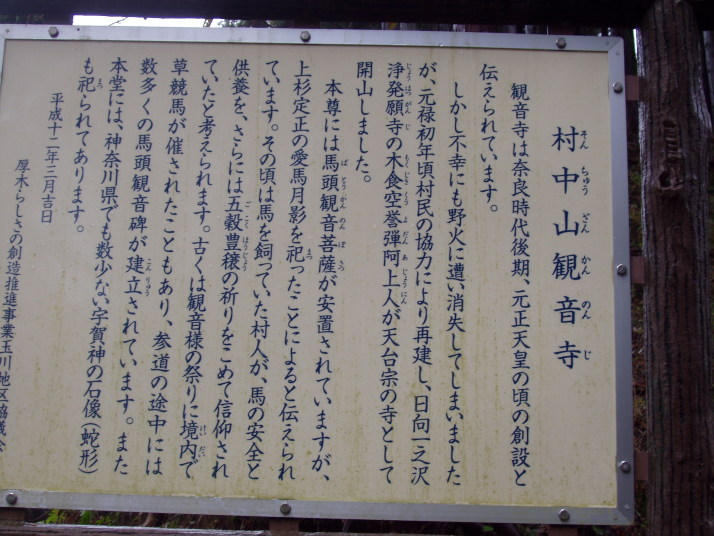 村中山観音寺
そんちゅうざんかんのんじ
観音寺は奈良時代後期、元正天皇の頃の創設と
伝えられています。
しかし不幸にも野火に遭い消失してしまいました
が、元禄初年頃、村民の協力により再建し、日向一之沢
浄発願寺の木食空誉弾阿上人が天台宗の寺として
じょうほつがんじ もくじきくうよだんあしょうにん
開山しました。
本尊には馬頭観音菩薩が安置されていますが、
ばとうかんのんぼさつ
上杉定正の愛馬月影を祀ったことによると伝えられ
まつ
ています。その頃は馬を飼っていた村人が、馬の安全と
供養を、さらには五穀豊穣の祈りをこめて信仰され
ごこくほうじょう
ていたと考えられます。古くは観音様の祭りに境内で
けいだい
草競馬が催されたこともあり、参道の途中には
数多くの馬頭観音碑が建立されています。また
こんりゅう
本堂には、神奈川県でも数少ない宇賀神の石像(蛇形)
も祀られてあります。
まつ
平成十二年三月吉日
厚木らしさの創造推進事業玉川地区協議会